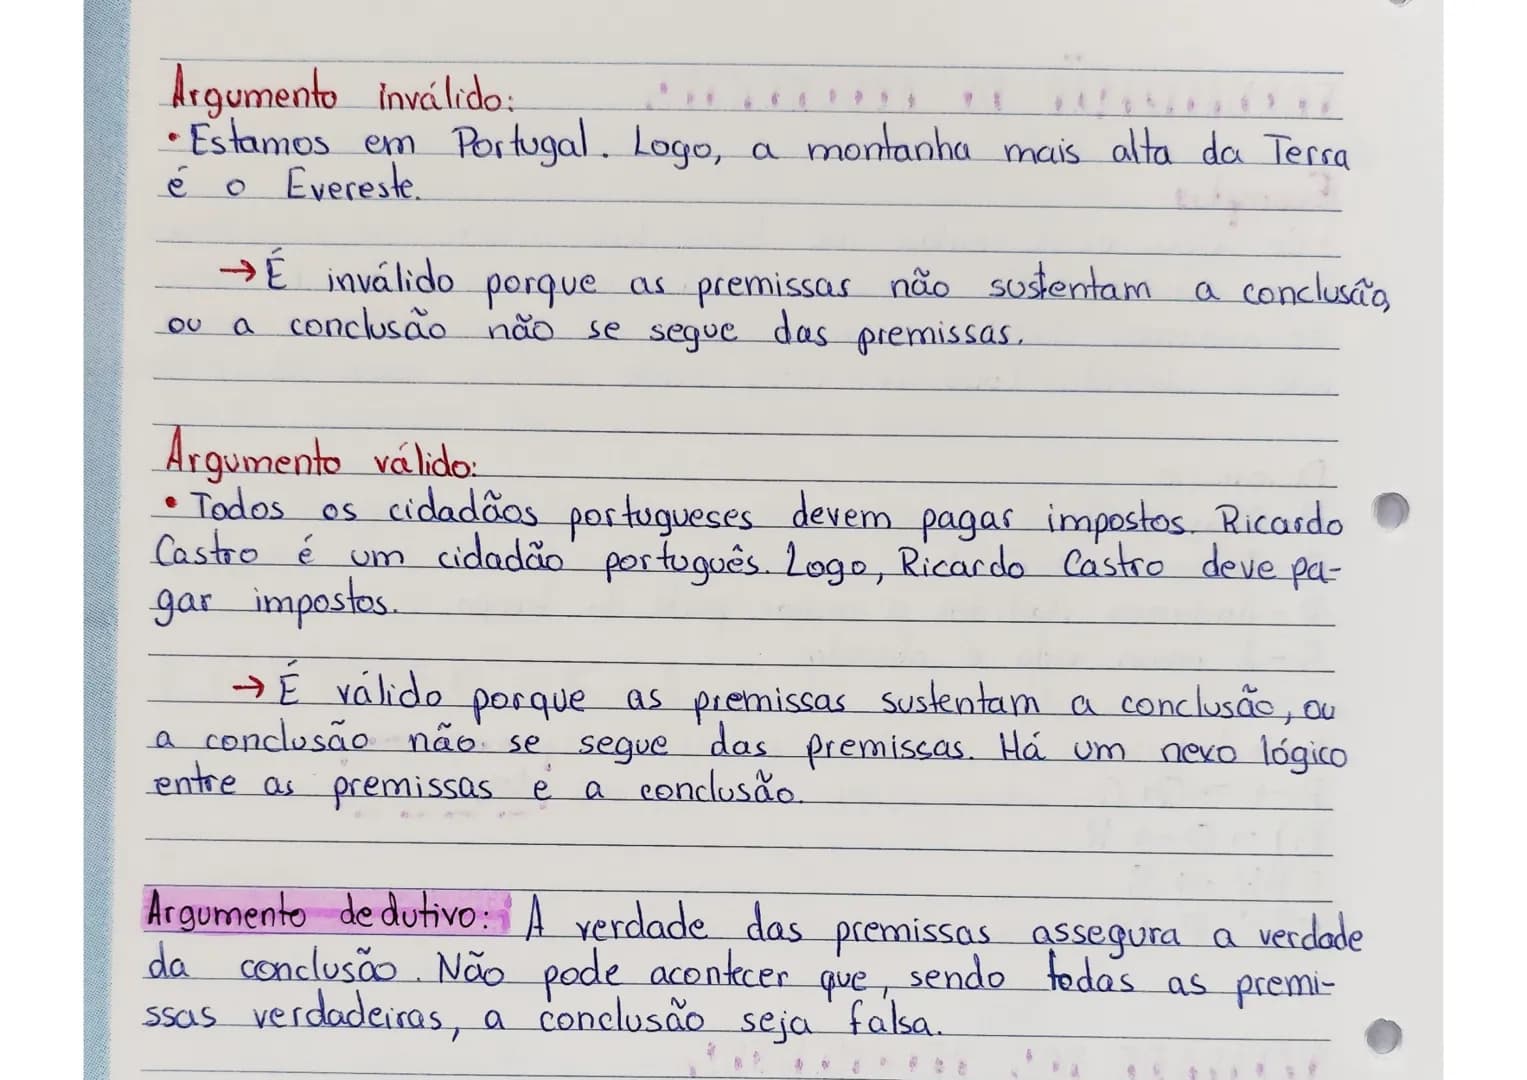 Argumento inválido:
• Estamos em Portugal. Logo, a montanha mais alta da Terra
é o Evereste.
→ É inválido porque as premissas não sustentam a conclusão,
ou a conclusão não se segue das premissas.
Argumento válido:
• Todos os cidadãos portugueses devem pagar impostos. Ricardo
Castro é um cidadão português. Logo, Ricardo Castro deve pa-
gar impostos.
→ É válido porque as premissas sustentam a conclusão, ou
a conclusão não se segue das premissas. Há um nexo lógico
entre as premissas e a conclusão.
Argumento dedutivo: A verdade das premissas assegura a verdade
da conclusão. Não pode acontecer que, sendo todas as premi-
ssas verdadeiras, a conclusão seja falsa.